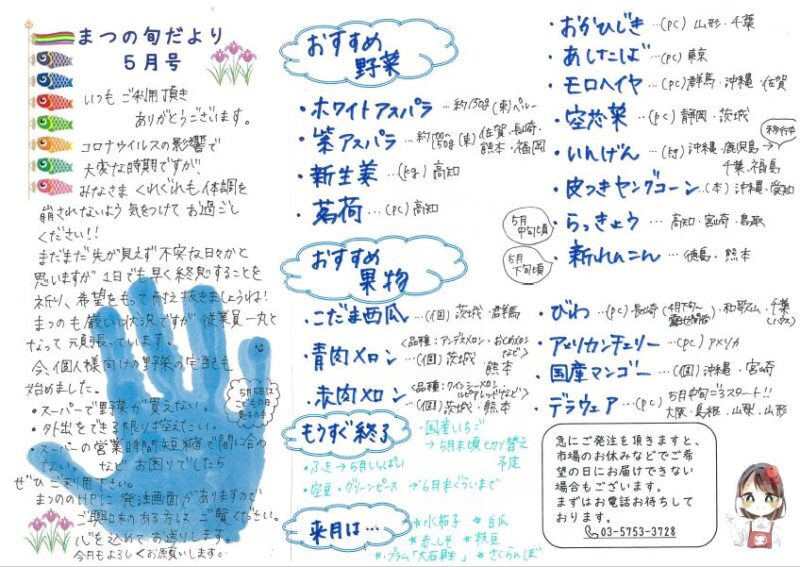 まつの旬だより
5月号
いつもご利用頂き
ありがとうございます。
コロナウイルスの影響で
大変な時期ですが、
みなさま くれぐれも体調を
崩されないよう気をつけてお過ごし
ください!!
まだまだ先が見えず不安な日々かと
思いますが1日でも早く終息することを
祈り、希望をもって耐え抜きましょうね!
まつのも厳しい状況ですが従業員一丸と
なって頑張っています。
今、個人様向けの野菜の宅配も
始めました。
・スーパーで野菜が買えない。
・外出をできる限り控えたい。
・スーパーの営業時間短縮で間に合わ
ない。 など お困りでしたら
ぜひご利用下さい。
まつののHPに発注画面がありますので
ご興味のある方は ご覧ください。
心を込めてお送りします。
今月もよろしくお願いします。
5月5日は
こどもの日
おすすめ
野菜
・ホワイトアスパラ …約150g(束)ペルー
・紫アスパラ …約100〜150g(束)佐賀・長崎・
熊本・福岡
・新生姜 …(kg)高知
・茗荷 …(pc)高知
おすすめ
果物
・こだま西瓜 …(個)茨城・群馬
・青肉メロン <品種:アンデスメロン・おとめメロン
など>
…(個)茨城・熊本
・赤肉メロン <品種:クインシーメロン・
ルピアレッドなど>
…(個)茨城・熊本
もうすぐ終了
・国産いちご
→5月末頃切り替え
予定
・ふき→5月いっぱい
・空豆・グリーンピース →6月半ぐらいまで
来月は…
*水茄子 *白瓜
*赤しそ *枝豆
*プラム「大石早生」 *さくらんぼ
・おかひじき …(pc)山形・千葉
・あしたば …(pc)東京
・モロヘイヤ …(pc)群馬・沖縄・佐賀
・空芯菜 …(pc)静岡・茨城
・いんげん …(kg)沖縄・鹿児島→
千葉・福島
移行中
・皮つきヤングコーン …(本)沖縄・愛知
5月
中旬頃
・らっきょう …高知・宮崎・鳥取
5月
下旬頃
・新れんこん …徳島・熊本
・びわ …(pc)長崎・和歌山・千葉
(ハウス)
・アメリカンチェリー …(pc)アメリカ
・国産マンゴー …(個)沖縄・宮崎
・デラウェア …(pc)5月中旬〜スタート!!
大阪・島根・山梨・山形
急にご発注を頂きますと、
市場のお休みなどでご希
望の日にお届けできない
場合もございます。
まずはお電話お待ちして
おります。
03-5753-3728